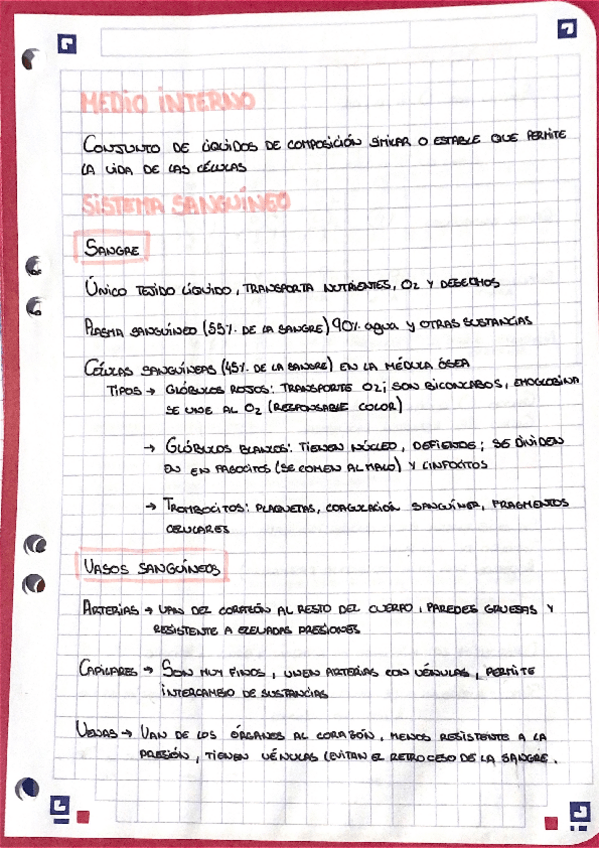 MEDIO INTERNO
CONJUNTO DE LÍQUIDOS DE COMPOSICIÓN SIMILAR O ESTABLE QUE PERMITE
LA VIDA DE LAS CÉLULAS
SISTEMA SANGUÍNEO
SANGRE
ÚNICO TEJIDO LÍQUIDO, TRANSPORTA NUTRIENTES, O2 Y DESECHOS
PLASMA SANGUÍNEO (55% DE LA SANGRE) 90% agua y OTRAS SUSTANCIAS
CÉLULAS SANGUÍNEAS (45% DE LA SANGRE) EN LA MÉDULA ÓSEA
TIPOS → GLÓBULOS ROJOS: TRANSPORTE O2; SON BICONCABOS, EMOGLOBINA
SE UNE AL O2 (RESPONSABLE COLOR)
→ GLÓBULOS BLANCOS: TIENEN NÚCLEO, DEFIENDE; SE DIVIDEN
EN EN FAGOCITOS (SE COMEN AL MALO) Y LINFOCITOS
→ TROMBOCITOS: PLAQUETAS, COAGULACIÓN SANGUÍNEA, FRAGMENTOS
CELULARES
VASOS SANGUÍNEOS
ARTERIAS → VAN DEL CORAZÓN AL RESTO DEL CUERPO, PAREDES GRUESAS Y
RESISTENTE A ELEVADAS PRESIONES
CAPILARES → SON MUY FINOS, UNEN ARTERIAS CON VÉNULAS, PERMITE
INTERCAMBIO DE SUSTANCIAS
VENAS → VAN DE LOS ÓRGANOS AL CORAZÓN, MENOS RESISTENTE A LA
PRESIÓN, TIENEN VÉNULAS (EVITAN EL RETROCESO DE LA SANGRE.